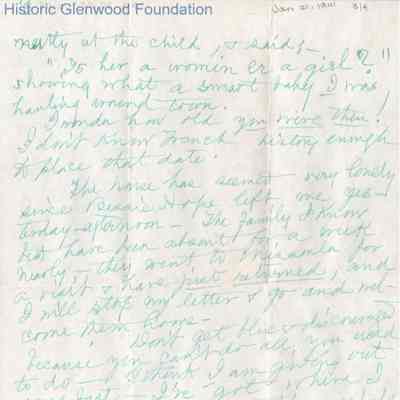 Historic Glenwood Foundation
Jan 21, 1941 3/4
at the child, & said,–
"Is her a womin er a girl?"
showing what a smart baby I was
hauling around town.
I wonder how old you were then!
I don't know French history enough
to place that date.
The house has seemed very lonely
since Bessie Hope left me yes-
terday afternoon – The family I know
best have been absent for a week
nearly – they went to for
a visit & have just returned, and
I will stop my letter & go and wel-
come them home –
Don't get blue & discouraged
because you can't do all you used
to do – I think I am giving out
fast – I've got where I